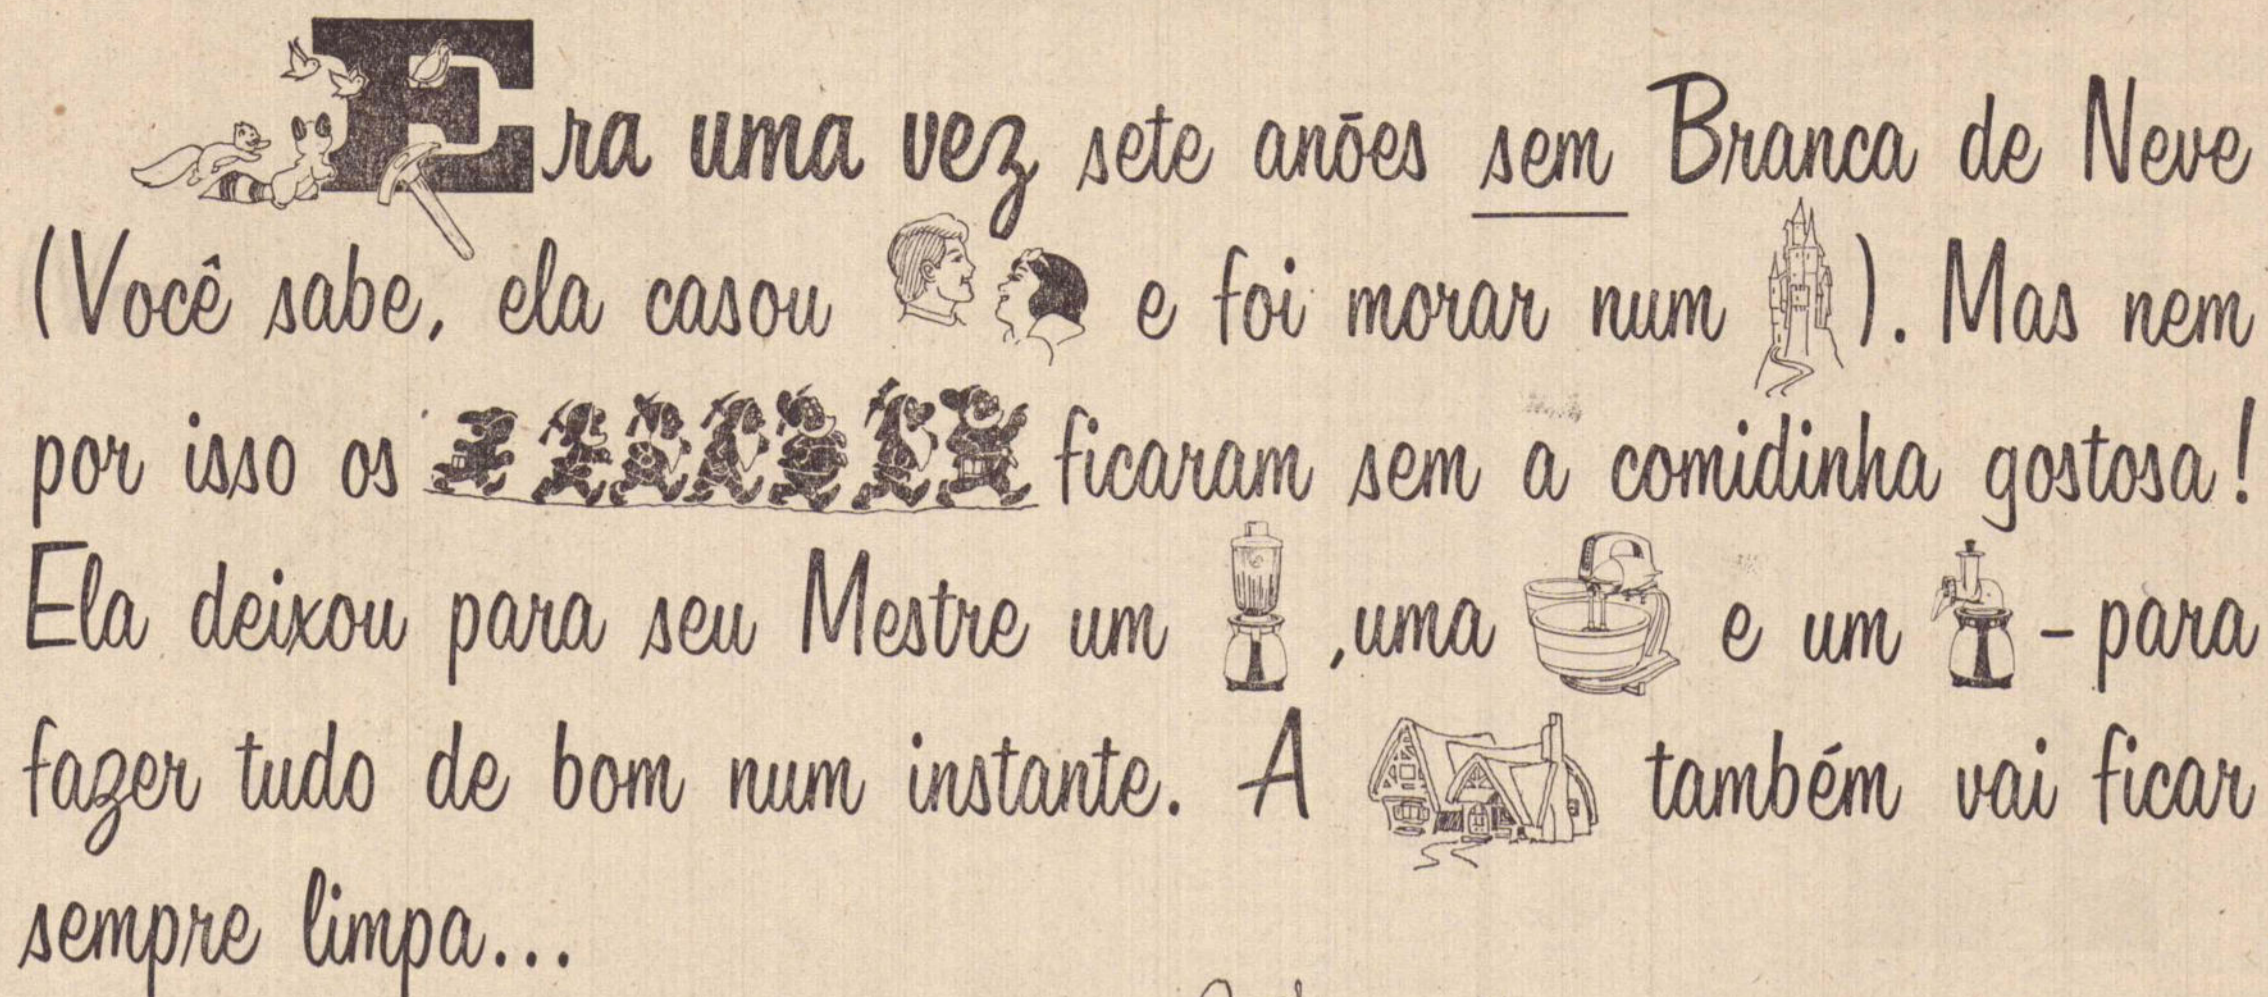 Era uma vez sete anões sem Branca de Neve
(Você sabe, ela casou e foi morar num ). Mas nem
por isso os ficaram sem a comidinha gostosa!
Ela deixou para seu Mestre um , uma e um - para
fazer tudo de bom num instante. A também vai ficar
sempre limpa...